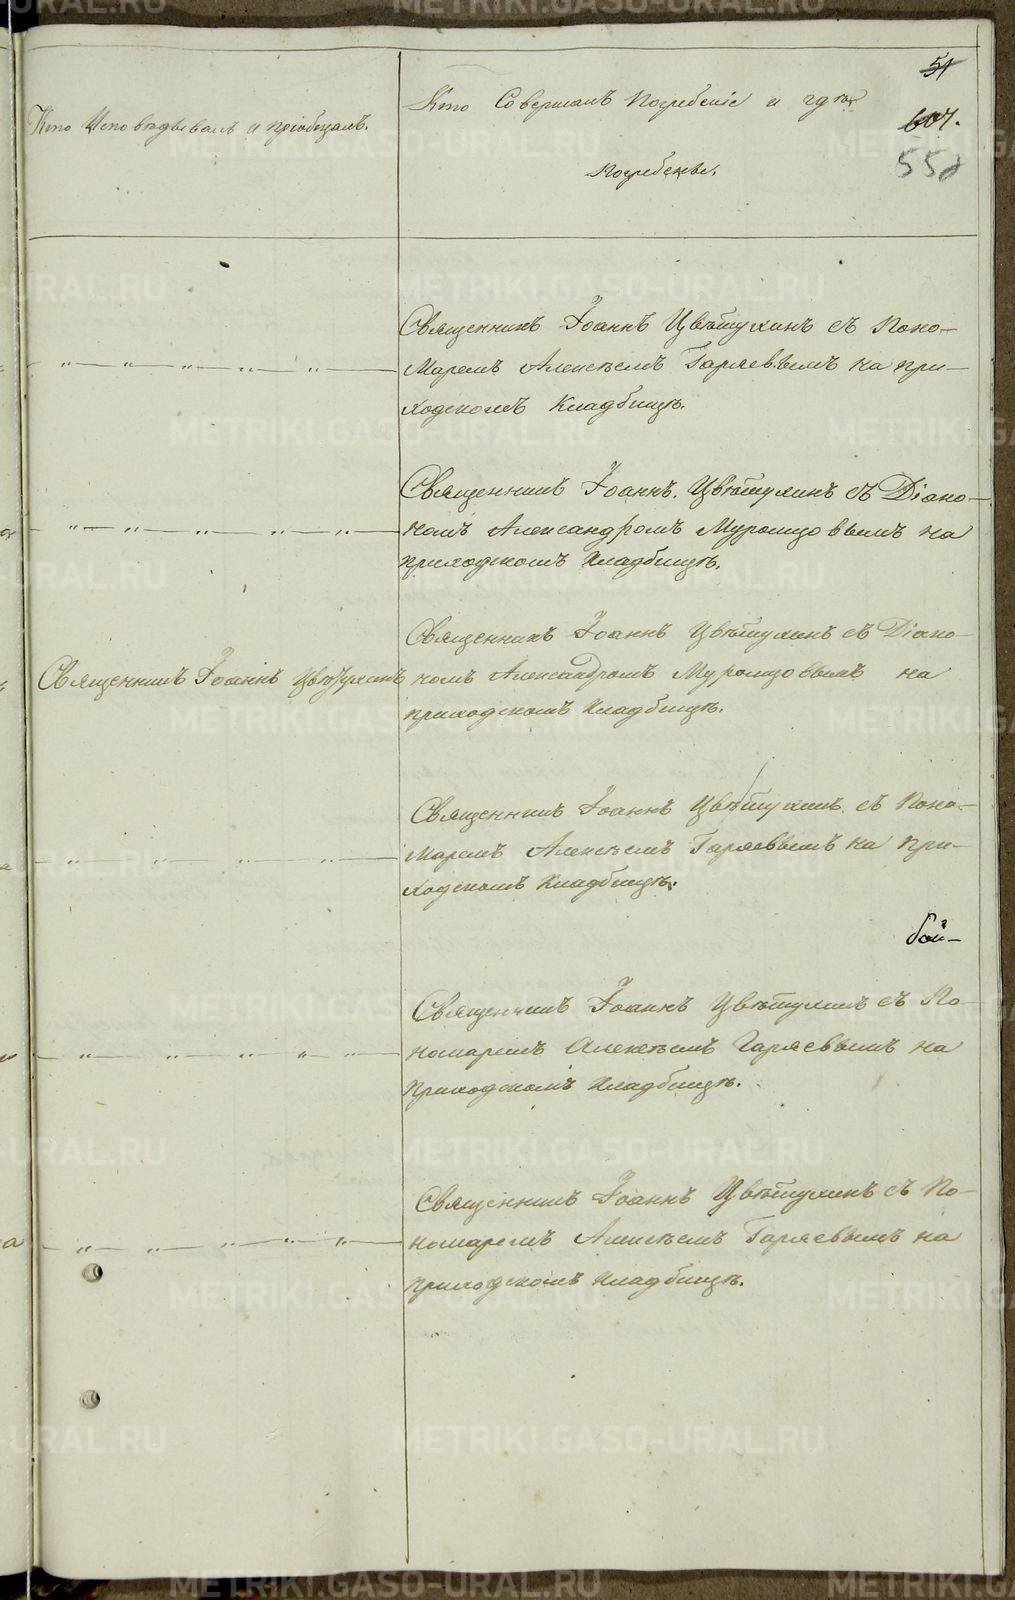 51
607.
558
Кто Исповѣдывалъ и пріобщалъ.
Кто Совершалъ Погребеніе и гдѣ
погребены.
Священникъ Іоаннъ Цвѣтухинъ съ Поно-
маремъ Алексѣемъ Гаряевымъ на при-
ходскомъ Кладбищѣ.
Священникъ Іоаннъ Цвѣтухинъ съ Діако-
номъ Александромъ Муромцовымъ на
приходскомъ Кладбищѣ.
Священникъ Іоаннъ Цвѣтухинъ съ Діако-
Священникъ Іоаннъ Цвѣтухинъ номъ Александромъ Муромцовымъ на
приходскомъ Кладбищѣ.
Священникъ Іоаннъ Цвѣтухинъ съ Поно-
маремъ Алексѣемъ Гаряевымъ на при-
ходскомъ Кладбищѣ.
Священникъ Іоаннъ Цвѣтухинъ съ По-
номаремъ Алексѣемъ Гаряевымъ на
приходскомъ Кладбищѣ.
Священникъ Іоаннъ Цвѣтухинъ съ По-
номаремъ Алексѣемъ Гаряевымъ на
приходскомъ Кладбищѣ.
METRIKI.GASO-URAL.RU